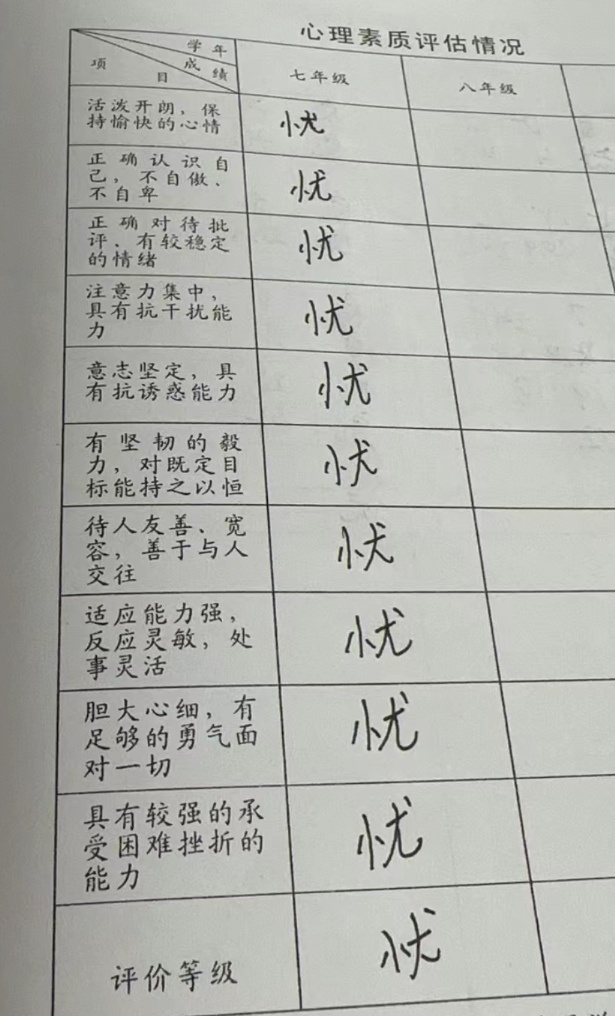 心理素质评估情况
学年
成绩
项目
七年级
八年级
活泼开朗，保
持愉快的心情
忧
正确认识自
己，不自傲、
不自卑
忧
正确对待批
评、有较稳定
的情绪
忧
注意力集中，
具有抗干扰能
力
忧
意志坚定，具
有抗诱惑能力
忧
有坚韧的毅
力，对既定目
标能持之以恒
忧
待人友善、宽
容，善于与人
交往
忧
适应能力强，
反应灵敏，处
事灵活
忧
胆大心细，有
足够的勇气面
对一切
忧
具有较强的承
受困难挫折的
能力
忧
评价等级
忧